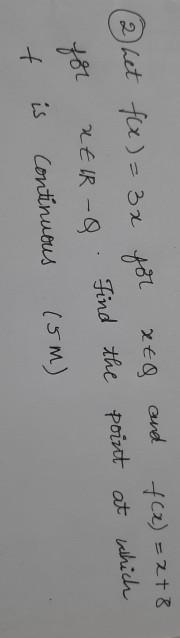 ② Let f(x) = 3x for x ∈ Q and f(x) = x + 8
for x ∈ IR - Q. Find the point at which
f is continuous (5M)